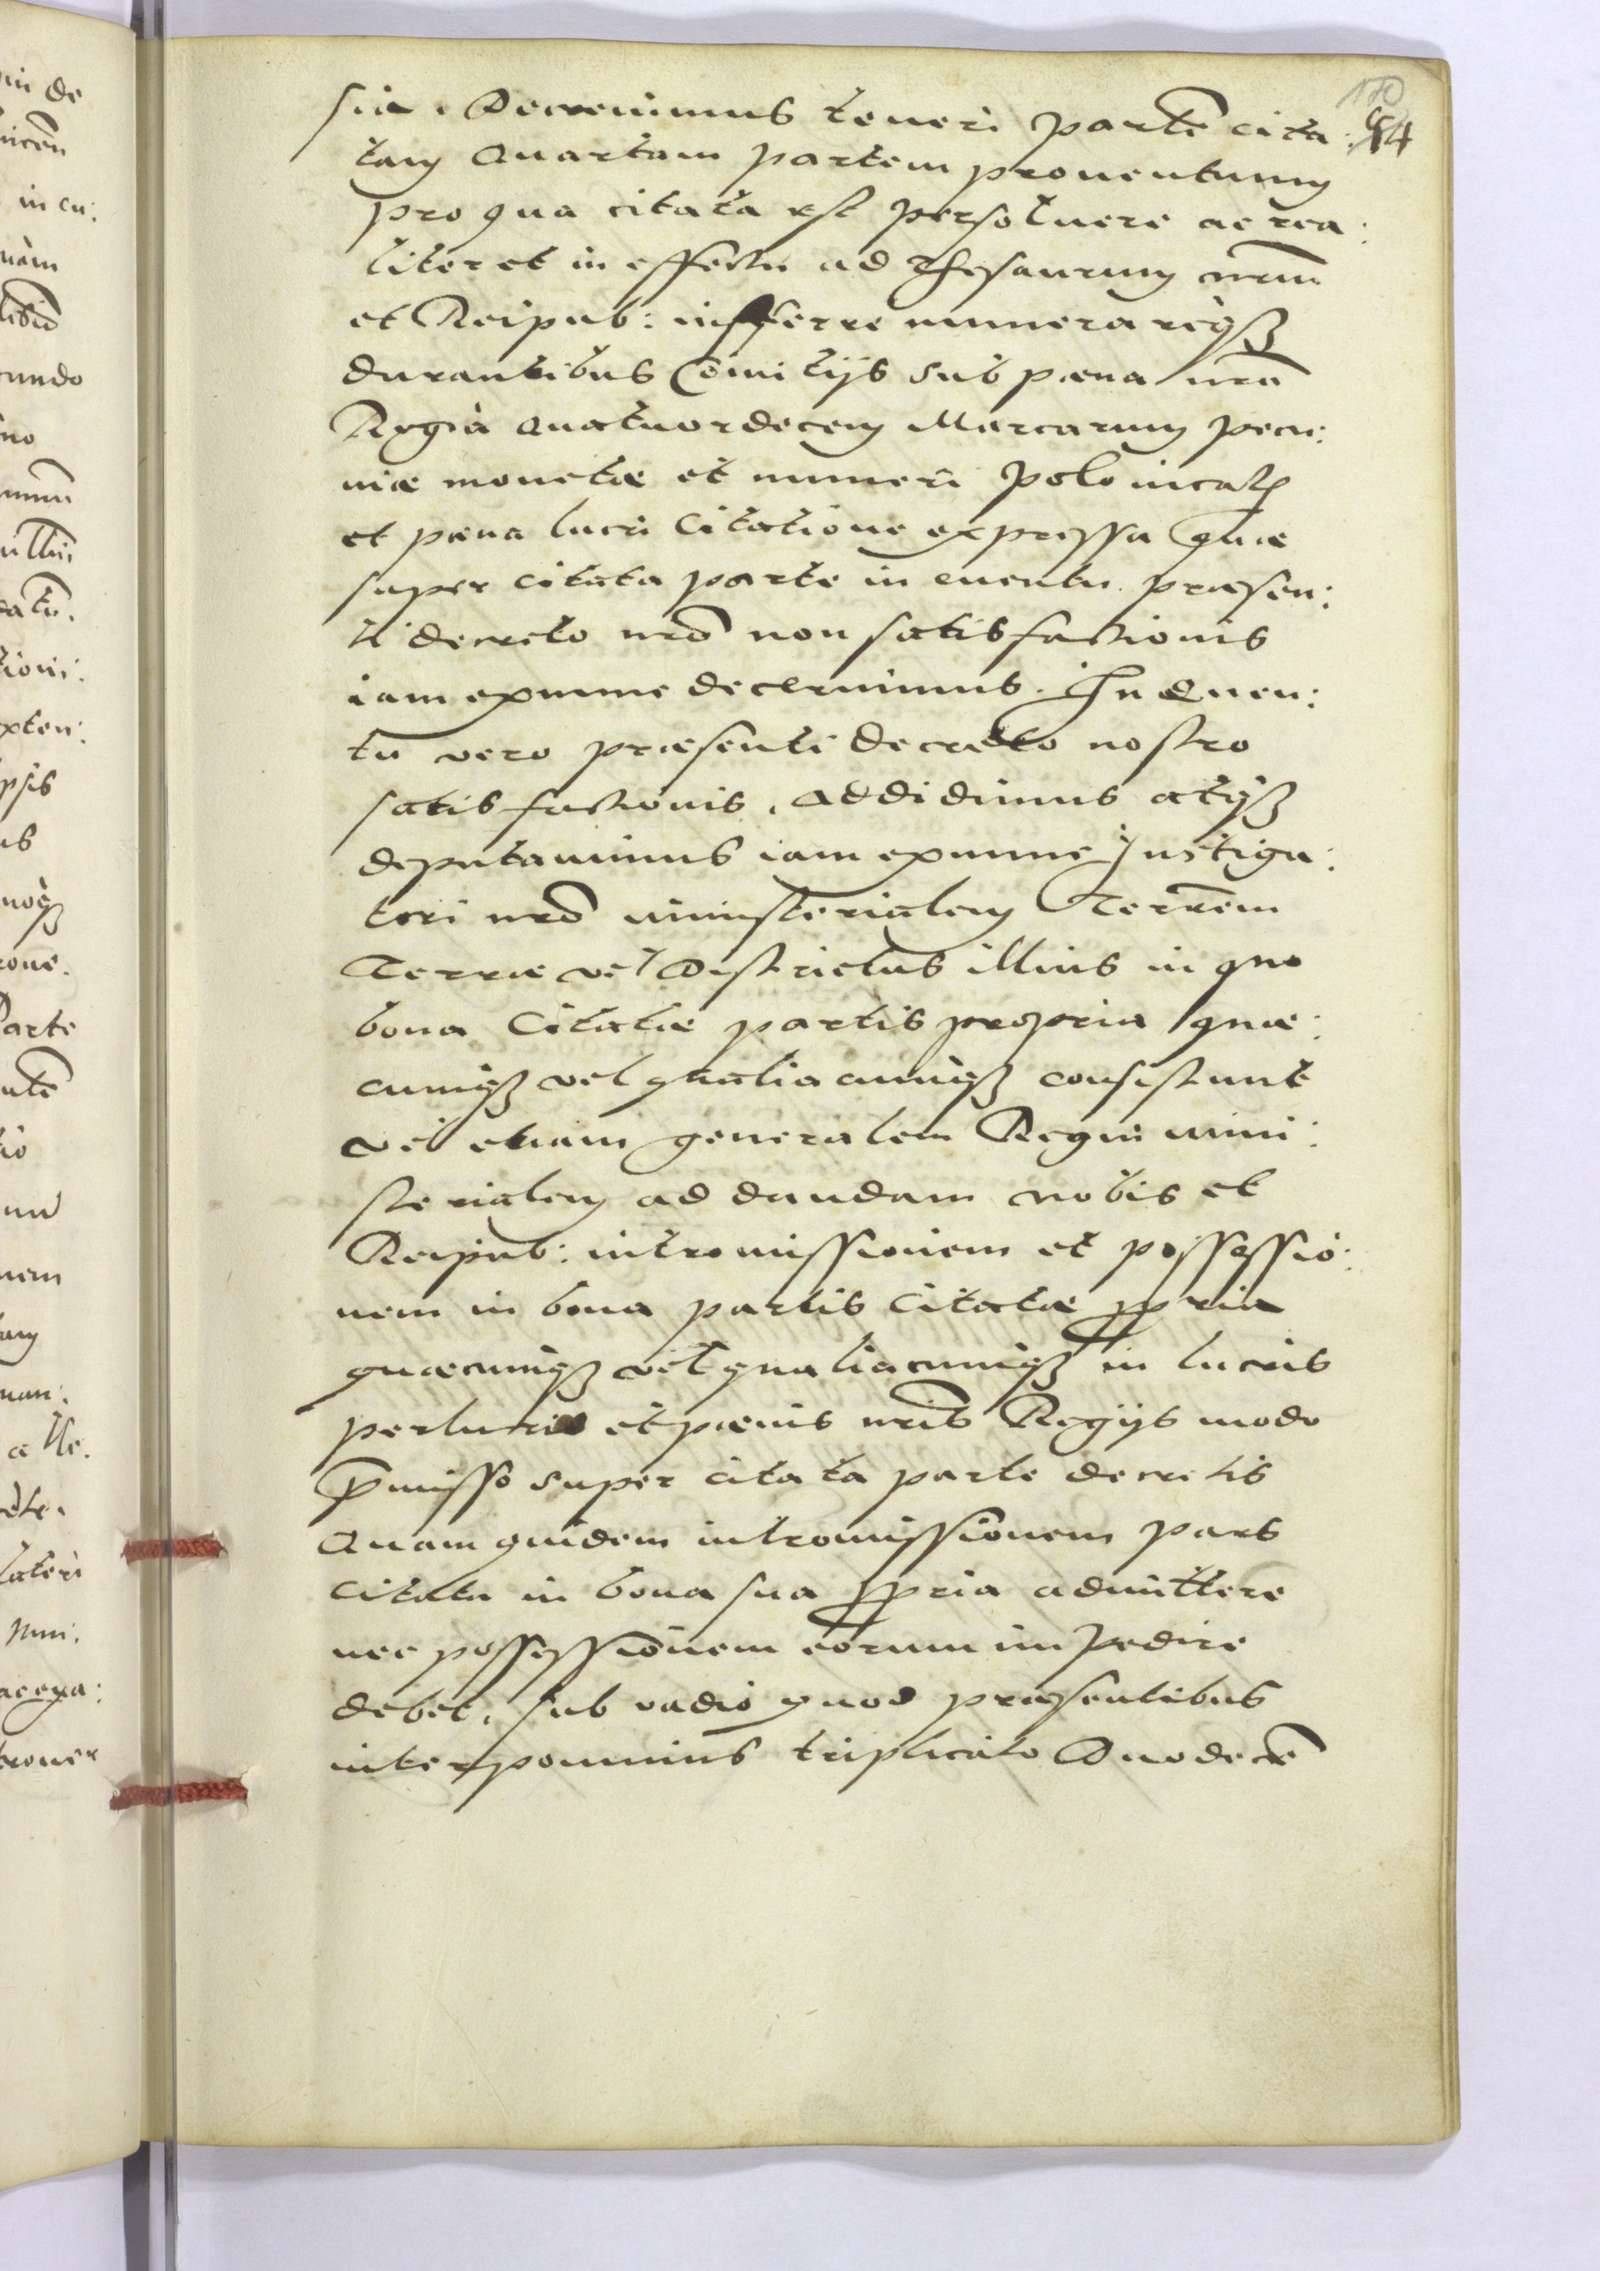 sia. Decreuimus teneri partē cita:
tam quartam partem prouentuum
pro qua citata est persoluere ac rea:
liter et in effectu ad Thesaurum nrm̄
et Reipub: inferre numerareq̃ȝ
durantibus Comitijs sub pœna nrā
Regia quatuordecem Marcarum pecu:
niæ monetæ et numeri Polonicaꝝ
et pœna lucri Citatione expressa quæ
super citata parte in euentu præsen:
ti decreto nrō non satisfactionis
iam exnunc decernimus. In euen:
tu vero præsenti decreto nostro
satisfactionis, addidimus atq̃ȝ
deputauimus iam exnunc Instiga:
tori nrō ministerialem Terrēm
Terræ vel Districtus illius in quo
bona Citatæ partis propria quæ:
cumq̃ȝ vel qualiacumq̃ȝ consistunt
vel etiam generalem Regni mini:
sterialem ad dandam nobis et
Reipub: intromissionem et possessio:
nem in bona partis Citatæ ꝓpria
quæcumq̃ȝ vel qualiacumq̃ȝ in lucris
perlucris et pœnis nrīs Regijs modo
p̄misso super citata parte decretis
Quam quidem intromissionem pars
Citata in bona sua ꝓpria admittere
nec possessionem eorum impedire
debet, sub vadio quod præsentibus
interponimus triplicato Duodecē